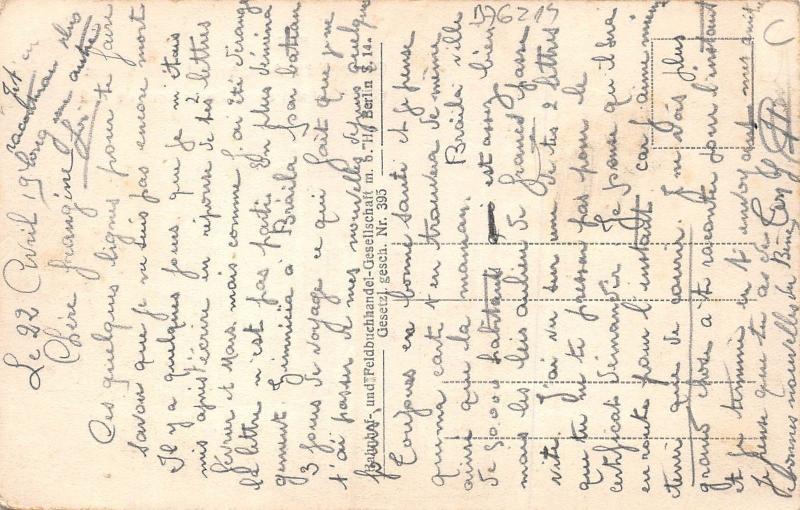 Le 22 Avril 19
Chère frangine
Ces quelques lignes pour te faire
savoir que je ne suis pas encore mort
Il y a quelques jours que je m'étais
mis à t'écrire en réponse de tes lettres
février et Mars, mais comme j'ai été dérangé
la lettre n'est pas partie. En plus déména
gement à Braïla par bateau
3 jours de voyage ce qui fait que je ne
t'ai passer de mes nouvelles depuis quelques
jours.
Toujours en bonne santé et je pense
que ma carte t'en trouvera de même
ainsi que la maman. Braïla ville
de 50.000 habitants est assez bien
mais les beis au lieu de francs passe
vite. J'ai vu sur une de tes 2 lettres
que tu ne te presser pas pour le
certificat d'émanger. Je pense qu'il sera
en route pour l'instant car j'aime mieux
tenir que de courir. Je ne vois plus
grand chose à te raconter pour l'instant
et je termine en t'envoyant mes amit
Je pense que tu as de
bonnes nouvelles du
Bahnhof- und Feldbuchhandel-Gesellschaft m. b. H., Berlin S. 14.
Gesetzl. gesch. Nr. 395
D76215